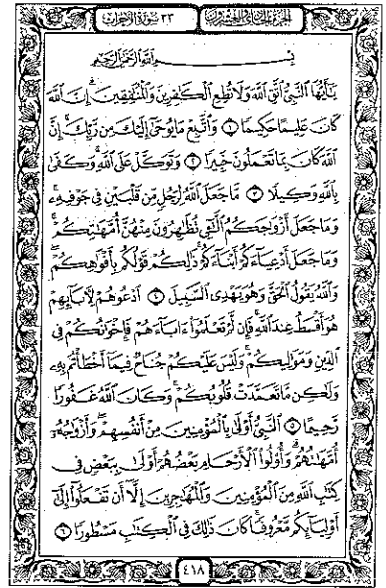 الجزء الحادي والعشرون ٣٣ سورة الأحزاب
بِسْمِ اللَّهِ الرَّحْمَٰنِ الرَّحِيمِ
يَٰٓأَيُّهَا ٱلنَّبِىُّ ٱتَّقِ ٱللَّهَ وَلَا تُطِعِ ٱلْكَٰفِرِينَ وَٱلْمُنَٰفِقِينَ إِنَّ ٱللَّهَ
كَانَ عَلِيمًا حَكِيمًا ١ وَٱتَّبِعْ مَا يُوحَىٰٓ إِلَيْكَ مِن رَّبِّكَ إِنَّ
ٱللَّهَ كَانَ بِمَا تَعْمَلُونَ خَبِيرًا ٢ وَتَوَكَّلْ عَلَى ٱللَّهِ وَكَفَىٰ
بِٱللَّهِ وَكِيلًا ٣ مَّا جَعَلَ ٱللَّهُ لِرَجُلٍ مِّن قَلْبَيْنِ فِى جَوْفِهِۦ
وَمَا جَعَلَ أَزْوَٰجَكُمُ ٱلَّٰٓـِٔى تُظَٰهِرُونَ مِنْهُنَّ أُمَّهَٰتِكُمْ
وَمَا جَعَلَ أَدْعِيَآءَكُمْ أَبْنَآءَكُمْ ذَٰلِكُمْ قَوْلُكُم بِأَفْوَٰهِكُمْ
وَٱللَّهُ يَقُولُ ٱلْحَقَّ وَهُوَ يَهْدِى ٱلسَّبِيلَ ٤ ٱدْعُوهُمْ لِءَابَآئِهِمْ
هُوَ أَقْسَطُ عِندَ ٱللَّهِ فَإِن لَّمْ تَعْلَمُوٓا۟ ءَابَآءَهُمْ فَإِخْوَٰنُكُمْ فِى
ٱلدِّينِ وَمَوَٰلِيكُمْ وَلَيْسَ عَلَيْكُمْ جُنَاحٌ فِيمَآ أَخْطَأْتُم بِهِۦ
وَلَٰكِن مَّا تَعَمَّدَتْ قُلُوبُكُمْ وَكَانَ ٱللَّهُ غَفُورًا
رَّحِيمًا ٥ ٱلنَّبِىُّ أَوْلَىٰ بِٱلْمُؤْمِنِينَ مِنْ أَنفُسِهِمْ وَأَزْوَٰجُهُۥٓ
أُمَّهَٰتُهُمْ وَأُو۟لُوا۟ ٱلْأَرْحَامِ بَعْضُهُمْ أَوْلَىٰ بِبَعْضٍ فِى
كِتَٰبِ ٱللَّهِ مِنَ ٱلْمُؤْمِنِينَ وَٱلْمُهَٰجِرِينَ إِلَّآ أَن تَفْعَلُوٓا۟ إِلَىٰٓ
أَوْلِيَآئِكُم مَّعْرُوفًا كَانَ ذَٰلِكَ فِى ٱلْكِتَٰبِ مَسْطُورًا ٦
٤١٨